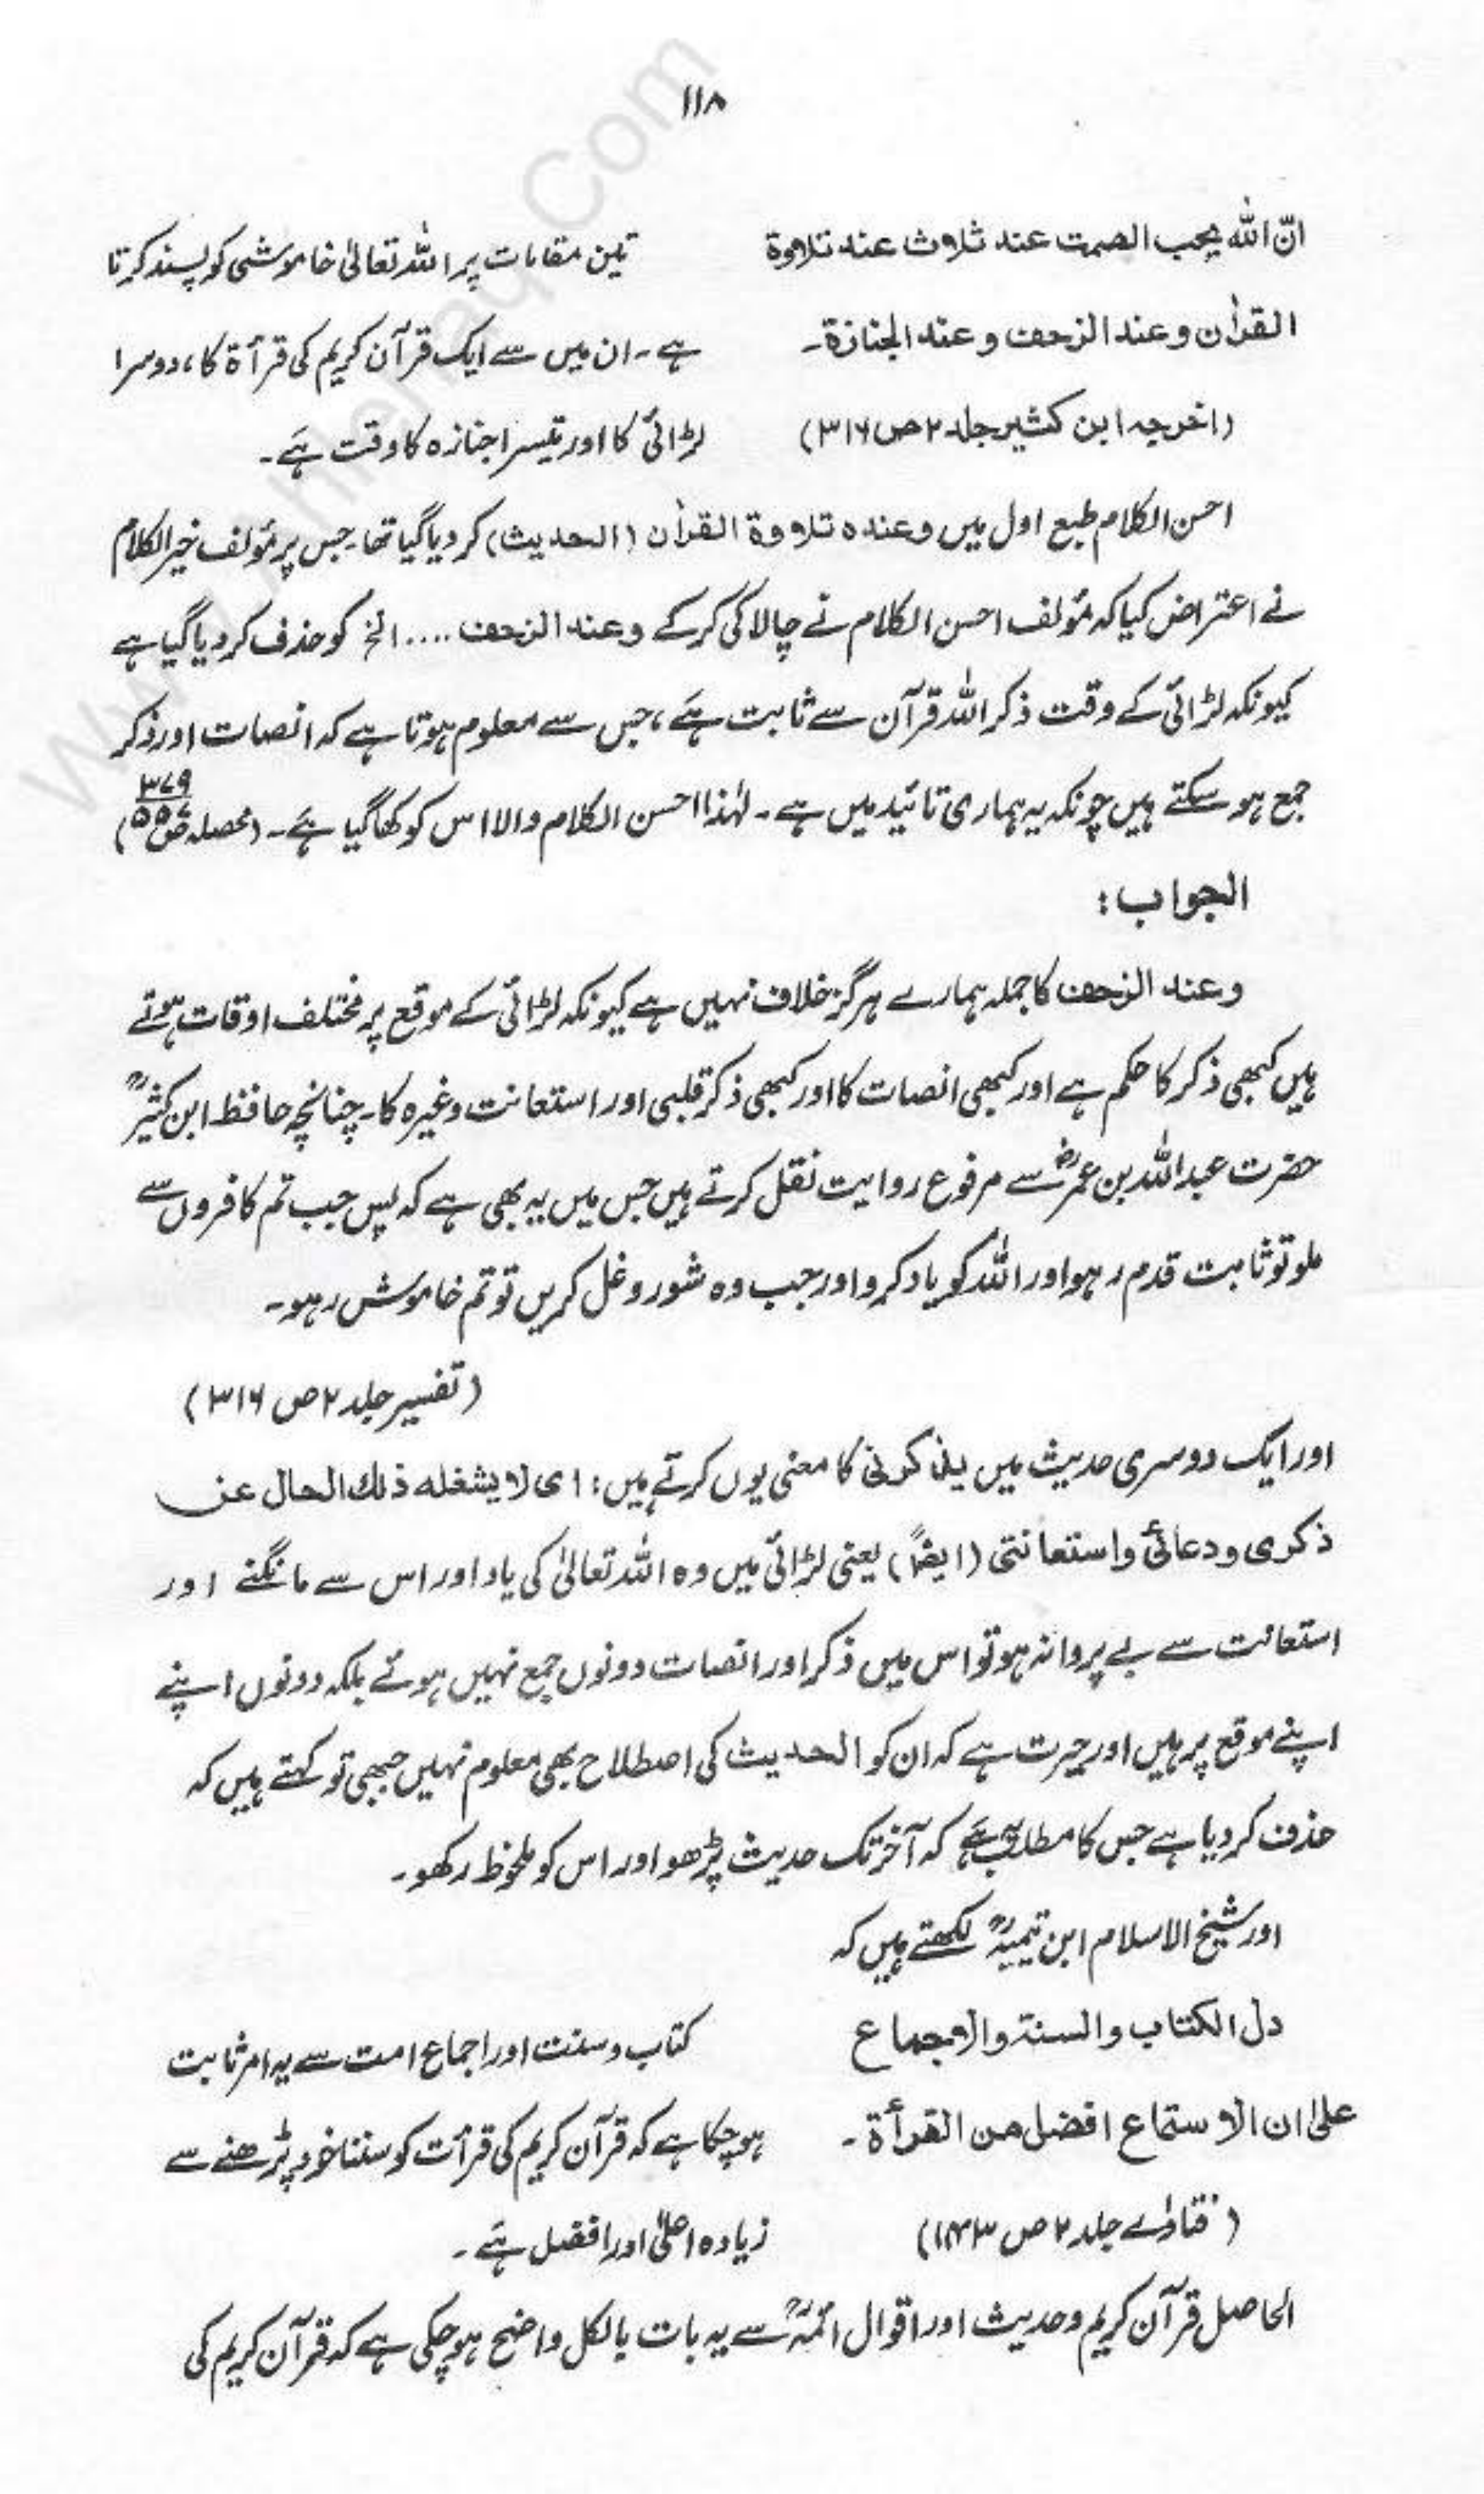 ۱۱۸
انّ اللّٰہ یحب الصمت عند ثلاث عند تلاوة
تین مقامات پر اللہ تعالیٰ خاموشی کو پسند کرتا
القراٰن وعند الزحف وعند الجنازة۔
ہے۔ ان میں سے ایک قرآن کریم کی قرأة کا، دوسرا
(اخرجہ ابن کثیر جلد ۲ ص ۳۱۶)
لڑائی کا اور تیسرا جنازہ کا وقت ہے۔
احسن الکلام طبع اول میں وعندہ تلاوة القراٰن (الحدیث) کر دیا گیا تھا۔ جس پر مؤلف خیر الکلام
نے اعتراض کیا کہ مؤلف احسن الکلام نے چالاکی کرکے وعند الزحف .... الخ کو حذف کر دیا گیا ہے
کیونکہ لڑائی کے وقت ذکر اللہ قرآن سے ثابت ہے، جس سے معلوم ہوتا ہے کہ انصات اور ذکر
جمع ہو سکتے ہیں چونکہ یہ ہماری تائید میں ہے۔ لہٰذا احسن الکلام والا اس کو کھا گیا ہے۔ (محصلہ ص ۳۷۹
الجواب:
وعند الزحف کا جملہ ہمارے ہرگز خلاف نہیں ہے کیونکہ لڑائی کے موقع پر مختلف اوقات ہوتے
ہیں کبھی ذکر کا حکم ہے اور کبھی انصات کا اور کبھی ذکر قلبی اور استعانت وغیرہ کا۔ چنانچہ حافظ ابن کثیرؒ
حضرت عبداللہ بن عمرؓ سے مرفوع روایت نقل کرتے ہیں جس میں یہ بھی ہے کہ پس جب تم کافروں سے
ملو تو ثابت قدم رہو اور اللہ کو یاد کرو اور جب وہ شور و غل کریں تو تم خاموش رہو۔
(تفسیر جلد ۲ ص ۳۱۶)
اور ایک دوسری حدیث میں یذکرنی کا معنی یوں کرتے ہیں: ای لا یشغلہ ذلك الحال عن
ذکری ودعائی واستعانتی (ایضاً) یعنی لڑائی میں وہ اللہ تعالیٰ کی یاد اور اس سے مانگنے اور
استعانت سے بے پروا نہ ہو تو اس میں ذکر اور انصات دونوں جمع نہیں ہوئے بلکہ دونوں اپنے
اپنے موقع پر ہیں اور حیرت ہے کہ ان کو الحدیث کی اصطلاح بھی معلوم نہیں جبھی تو کہتے ہیں کہ
حذف کر دیا ہے جس کا مطلب یہ ہے کہ آخر تک حدیث پڑھو اور اس کو ملحوظ رکھو۔
اور شیخ الاسلام ابن تیمیہؒ لکھتے ہیں کہ
دل الکتاب والسنۃ والاجماع
کتاب و سنت اور اجماع امت سے یہ امر ثابت
علیٰ ان الاستماع افضل من القرأة۔
ہو چکا ہے کہ قرآن کریم کی قرأت کو سننا خود پڑھنے سے
(فتاوٰے جلد ۲ ص ۱۴۳)
زیادہ اعلیٰ اور افضل ہے۔
الحاصل قرآن کریم و حدیث اور اقوال ائمہؒ سے یہ بات بالکل واضح ہو چکی ہے کہ قرآن کریم کی